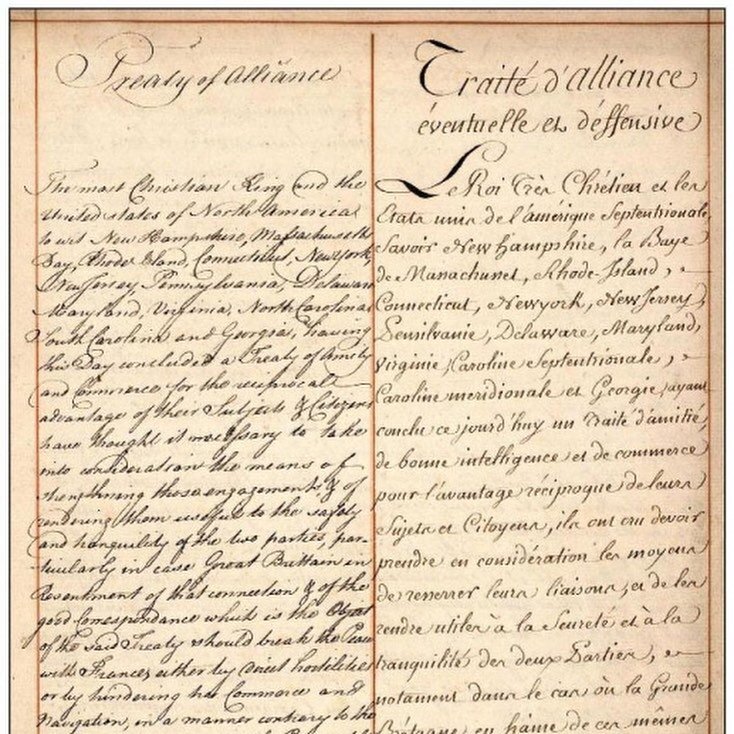 Treaty of Alliance
The most Christian King and the
United states of North America
to wit New Hampshire, Massachusetts
Bay, Rhode Island, Connecticut, Newyork,
New Jersey Pennsylvania, Delaware
Maryland, Virginia, North Carolina
South Carolina and Georgia, having
this Day concluded a Treaty of Amity
and Commerce for the reciprocal
advantage of their Subjects & Citizens
have thought it necessary to take
into consideration the means of
strengthning those engagements & of
rendering them useful to the safety
and tranquility of the two parties, par-
ticularly in case Great Brittain in
Resentment of that connection & of the
good Correspondance which is the Object
of the said Treaty should break the Peace
with France, either by direct hostilities
or by hindering her Commerce and
navigation, in a manner contrary to the
Traité d'alliance
éventuelle et déffensive
Le Roi Très Chrétien et les
Etats unis de l'amérique Septentrionale,
Savoir New hampshire, la Baye
de Massachuset, Rhode-Island,
Connecticut, Newyork, New Jersey,
Pensilvanie, Delaware, Maryland,
Virginie, Caroline Septentrionale,
Caroline meridionale et Georgie, ayant
conclu ce jourd'huy un Traité d'amitié,
de bonne intelligence et de commerce
pour l'avantage réciproque de leurs
Sujets et Citoyens, ils ont cru devoir
prendre en considération les moyens
de resserrer leurs liaisons, et de les
rendre utiles à la Seureté et à la
tranquilité des deux Parties,
notament dans le cas où la Grande
Bretagne en haine de ces mêmes